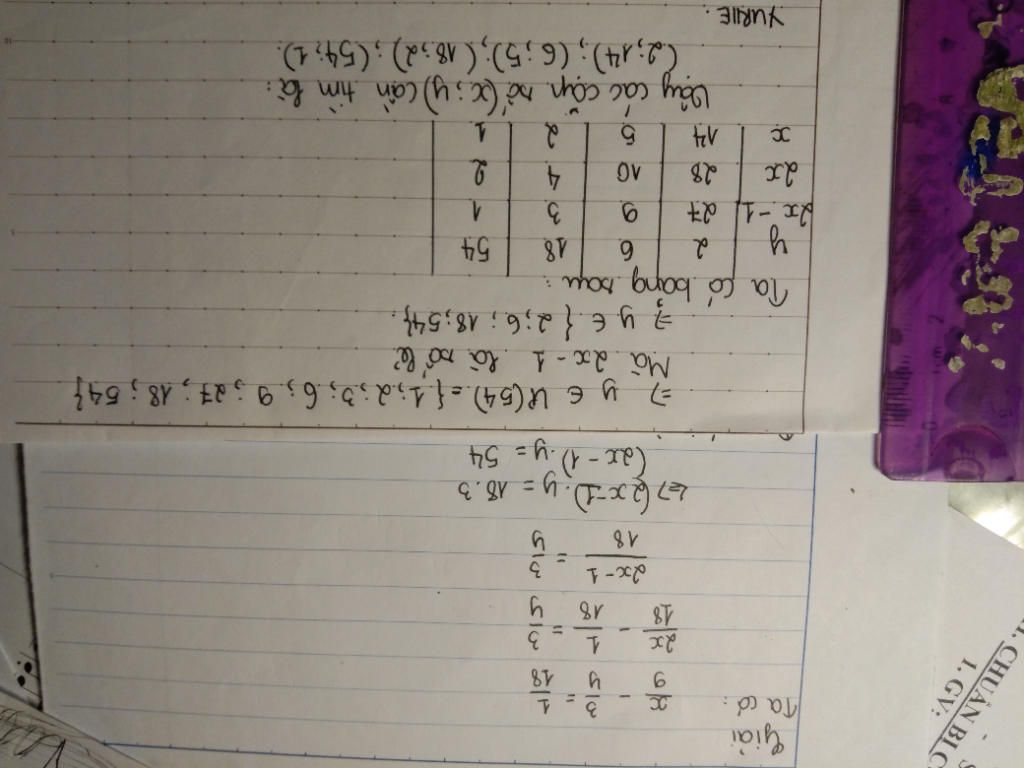 Giải
Ta có: x/9 - 3/y = 1/18
2x/18 - 1/18 = 3/y
2x-1/18 = 3/y
<=> (2x-1).y = 18.3
(2x-1).y = 54
=> y ∈ Ư(54) = {1;2;3;6;9;27;18;54}
Mà 2x-1 là số lẻ
=> y ∈ {2;6;18;54}.
Ta có bảng sau:
y 2 6 18 54
2x-1 27 9 3 1
2x 28 10 4 2
x 14 5 2 1
Vậy các cặp số (x;y) cần tìm là:
(2;14);(6;5);(18;2);(54;1).
YURIE.
CHUẨN BỊ C
1. GV: